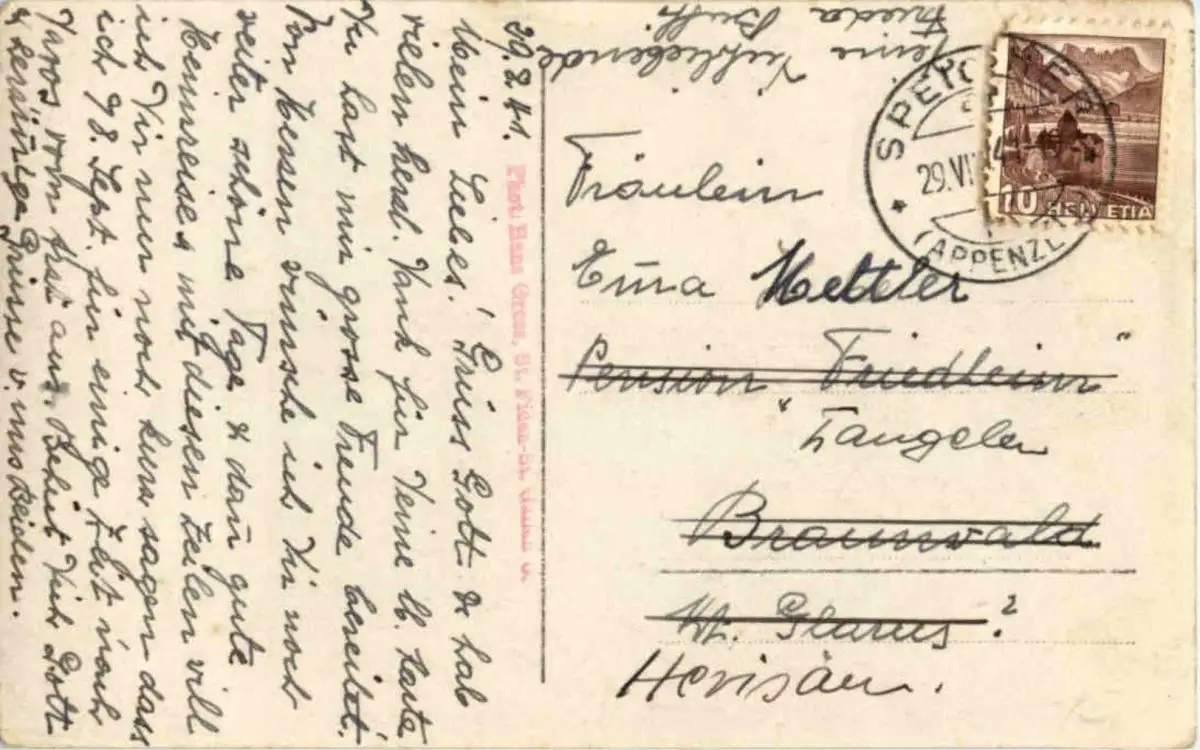 29.8.41.
Mein Liebes! Grüss Gott & hab
vielen herzl. Dank für Deine lb. Karte
Du hast mir grosse Freude bereitet.
Von Herzen wünsche ich Dir noch
weiter schöne Tage & dañ gute
Heimreise. Mit diesen Zeilen will
ich Dir nur noch kurz sagen dass
ich 98. Sept. für einige Zeit nach
Davos vom Haus aus. Behüt Dich Gott
& herzinige Grüsse v. uns beiden.
Deine Dichliebende
Frieda
Phot: Hans Gross, St. Fiden-St. Gallen
SPEICHER
29.VI
(APPENZL
10 HELVETIA
Fräulein
Em̄a Mettler
Pension "Friedheim"
Langeten
Braunwald
Kt. Glarus?
Herisau.